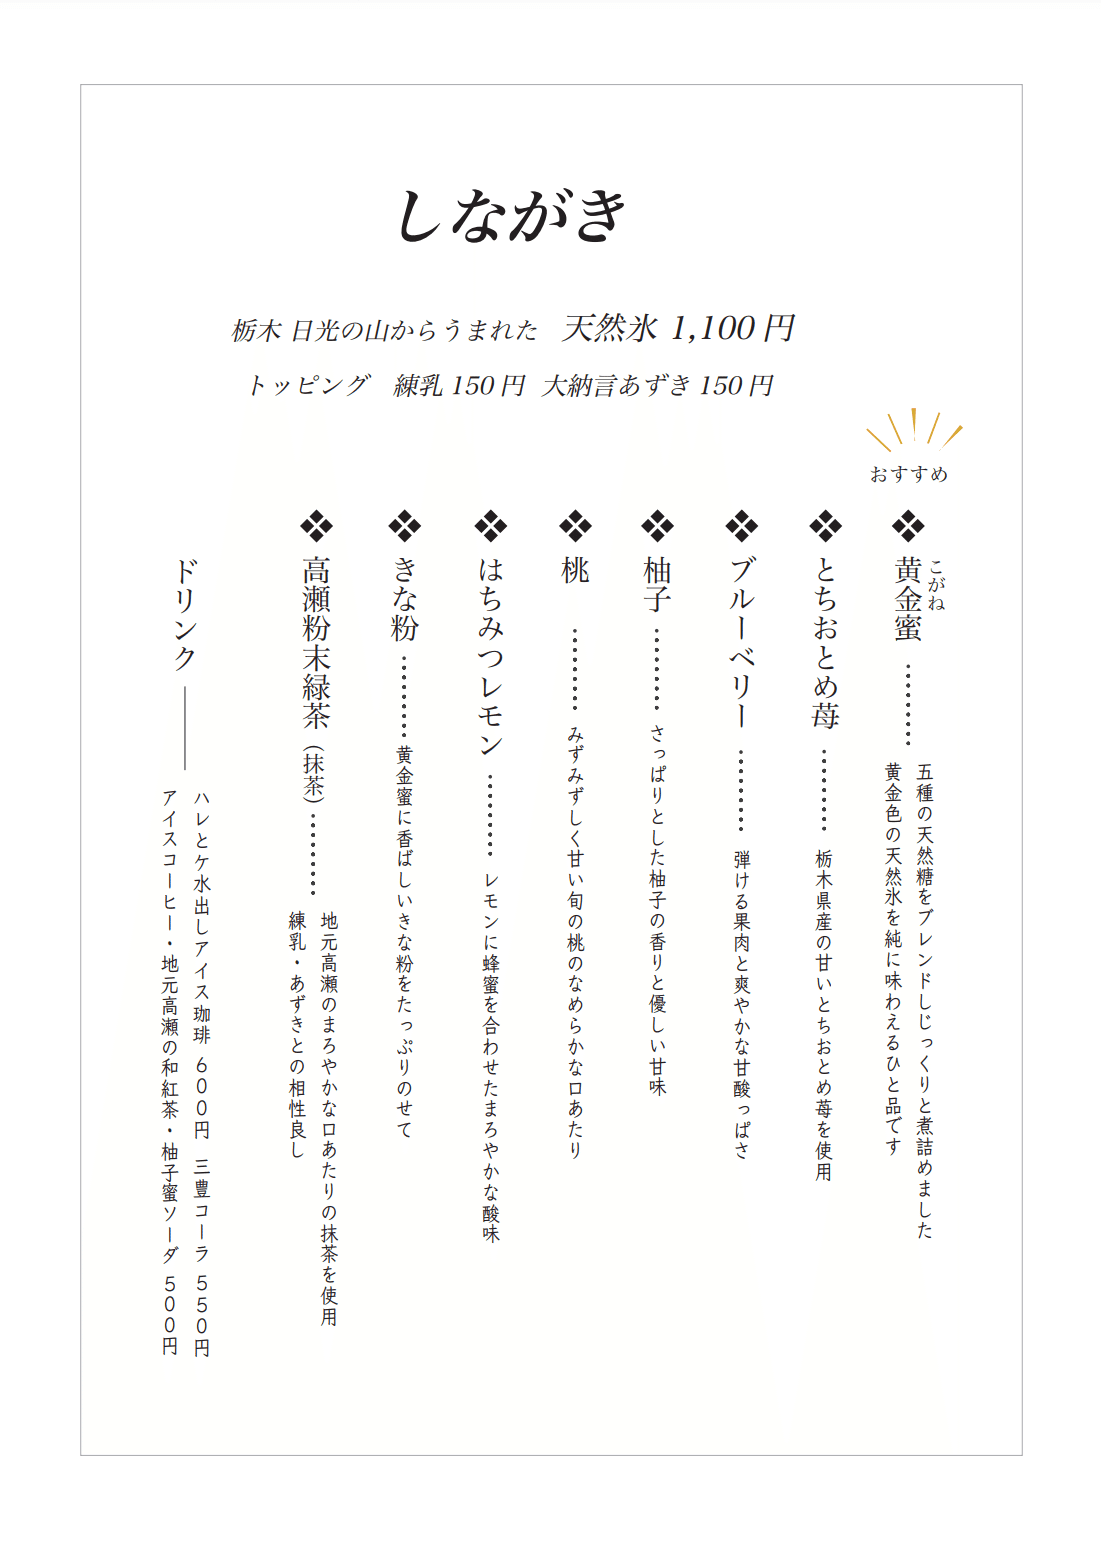 しながき
栃木 日光の山からうまれた 天然氷 1,100 円
トッピング 練乳 150 円 大納言あずき 150 円
おすすめ
黄金蜜
こがね
五種の天然糖をブレンドしじっくりと煮詰めました
黄金色の天然氷を純に味わえるひと品です
とちおとめ苺
栃木県産の甘いとちおとめ苺を使用
ブルーベリー
弾ける果肉と爽やかな甘酸っぱさ
柚子
さっぱりとした柚子の香りと優しい甘味
桃
みずみずしく甘い旬の桃のなめらかな口あたり
はちみつレモン
レモンに蜂蜜を合わせたまろやかな酸味
きな粉
黄金蜜に香ばしいきな粉をたっぷりのせて
高瀬粉末緑茶（抹茶）
地元高瀬のまろやかな口あたりの抹茶を使用
練乳・あずきとの相性良し
ドリンク
ハレとケ水出しアイス珈琲 600円 三豊コーラ 550円
アイスコーヒー・地元高瀬の和紅茶・柚子蜜ソーダ 500円